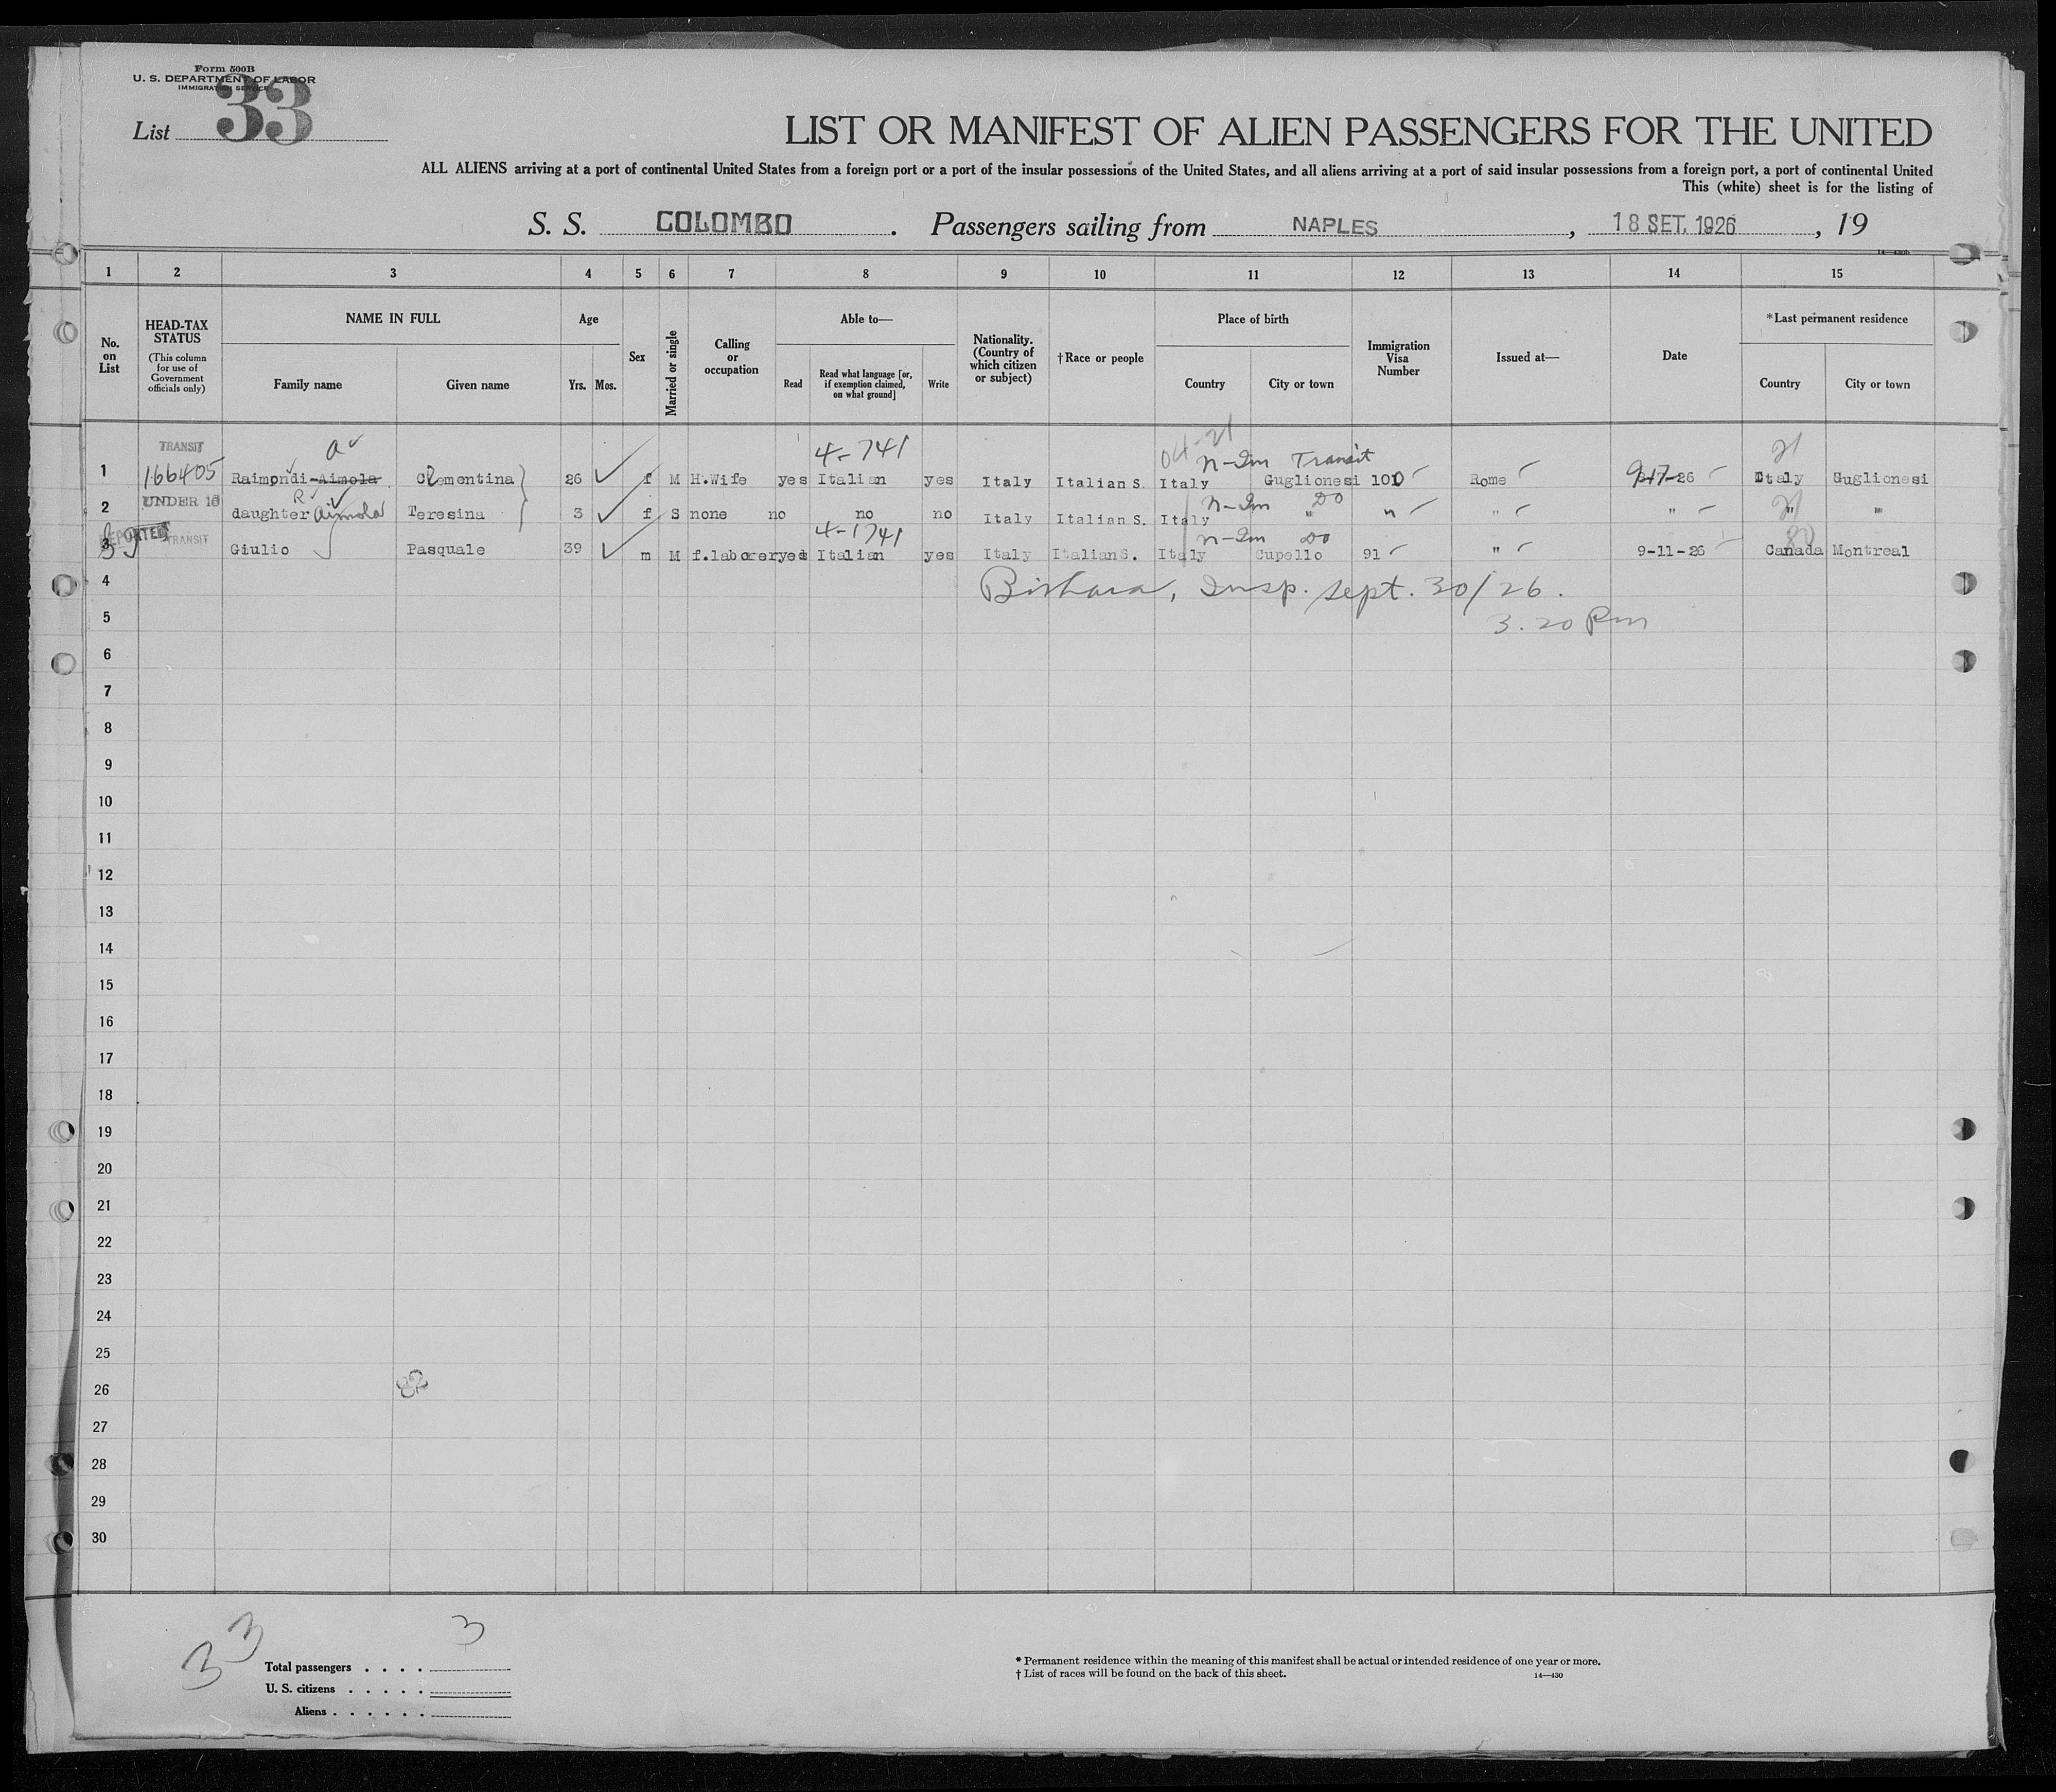 Form 500B
U. S. DEPARTMENT OF LABOR
IMMIGRATION SERVICE
List 33
LIST OR MANIFEST OF ALIEN PASSENGERS FOR THE UNITED
ALL ALIENS arriving at a port of continental United States from a foreign port or a port of the insular possessions of the United States, and all aliens arriving at a port of said insular possessions from a foreign port, a port of continental United
This (white) sheet is for the listing of
S. S. COLOMBO . Passengers sailing from NAPLES , 18 SET. 1926 , 19
1 2 3 4 5 6 7 8 9 10 11 12 13 14 15
No. on List
HEAD-TAX STATUS
(This column for use of Government officials only)
NAME IN FULL
Family name
Given name
Age
Yrs. Mos.
Sex
Married or single
Calling or occupation
Able to—
Read
Read what language [or, if exemption claimed, on what ground]
Write
Nationality. (Country of which citizen or subject)
†Race or people
Place of birth
Country
City or town
Immigration Visa Number
Issued at—
Date
*Last permanent residence
Country
City or town
TRANSIT
4-741
n-Im Transit
21
1 166405 Raimondi-Aimola Clementina 26 f M H.Wife yes Italian yes Italy Italian S. Italy Guglionesi 100 Rome 9-17-26 Italy Guglionesi
UNDER 16
R
n-Im Do
21
2 daughter Aimola Teresina 3 f S none no no no Italy Italian S. Italy " " " " " "
DEPORTED
TRANSIT
4-1741
n-Im Do
3 Giulio Pasquale 39 m M f.laborer yes Italian yes Italy Italian S. Italy Cupello 91 " 9-11-26 Canada Montreal
4 Bishara, Insp. Sept. 30/26.
5 3.20 Pm
6
7
8
9
10
11
12
13
14
15
16
17
18
19
20
21
22
23
24
25
26
27
28
29
30
33
3
Total passengers . . . .
U. S. citizens . . . . .
Aliens . . . . . .
* Permanent residence within the meaning of this manifest shall be actual or intended residence of one year or more.
† List of races will be found on the back of this sheet.
14—430